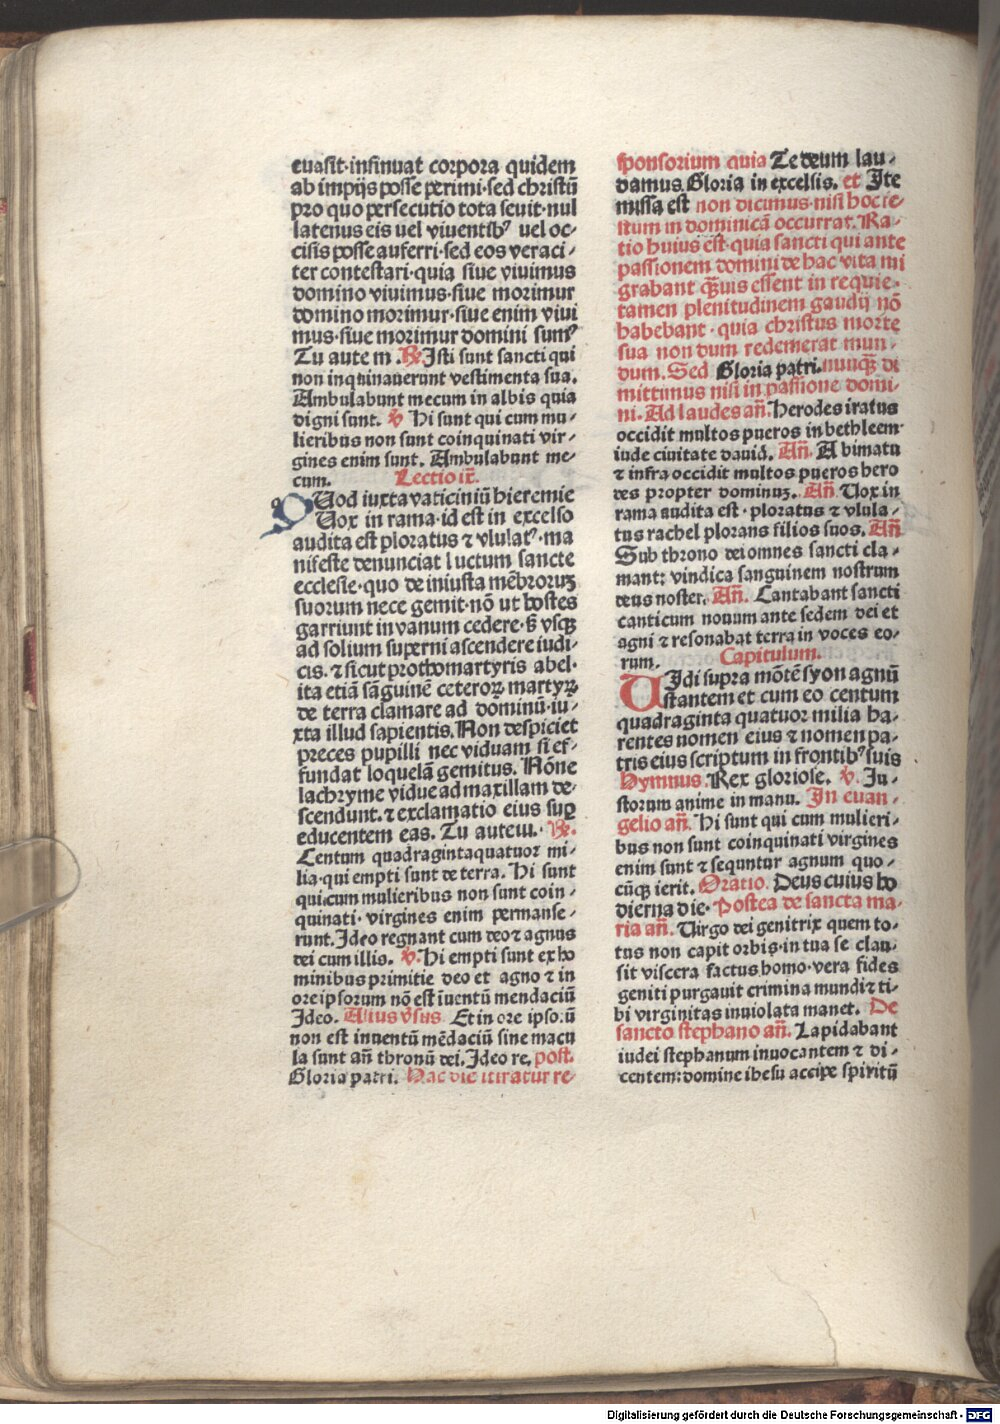 euasit·insinuat corpora quidem
ab impijs posse perimi·sed christū
pro quo persecutio tota seuit·nul
latenus eis uel viuentibꝰ uel oc⸗
cisis posse auferri·sed eos veraci⸗
ter contestari·quia siue viuimus
domino viuimus·siue morimur
domino morimur·siue enim viui
mus·siue morimur domini sumꝰ
Tu aute m. ℟ Isti sunt sancti qui
non inquinauerunt vestimenta sua.
Ambulabunt mecum in albis quia
digni sunt. ℣ Hi sunt qui cum mu⸗
lieribus non sunt coinquinati vir⸗
gines enim sunt. Ambulabunt me⸗
cum. Lectio ix̄.
QUod iuxta vaticiniū hieremie
Uox in rama·id est in excelso
audita est ploratus ⁊ vlulatꝰ·ma
nifeste denunciat luctum sancte
ecclesie·quo de iniusta mēbroruꝫ
suorum nece gemit·nō ut hostes
garriunt in vanum cedere·s̄ vsqꝫ
ad solium superni ascendere iudi⸗
cis. ⁊ sicut prothomartyris abel·
ita etiā sāguinē ceteroꝝ martyꝝ
de terra clamare ad dominū·iu⸗
xta illud sapientis. Non despiciet
preces pupilli nec viduam si ef⸗
fundat loquelā gemitus. Nōne
lachryme vidue ad maxillam de⸗
scendunt. ⁊ exclamatio eius suꝑ
educentem eas. Tu autem. ℟.
Centum quadragintaquatuor mi⸗
lia·qui empti sunt de terra. Hi sunt
qui·cum mulieribus non sunt coin⸗
quinati· virgines enim permanse⸗
runt. Ideo regnant cum deo ⁊ agnus
dei cum illis. ℣. Hi empti sunt ex ho
minibus primitie deo et agno ⁊ in
ore ipsorum nō est īuentū mendaciū
Ideo. Alius v̄sus Et in ore ipso:ū
non est inuentū mēdaciū sine macu
la sunt an̄ thronū dei. Ideo re. post.
Gloria patri. Hac die itiratur re⸗
sponsorium quia Te deum lau⸗
damus. Gloria in excelsis. et Ite
missa est non dicimus·nisi hoc fe⸗
stum in dominicā occurrat. Ra⸗
tio huius est·quia sancti qui ante
passionem domini de hac vita mi
grabant qͣꝫuis essent in requie⸗
tamen plenitudinem gaudij nō
habebant·quia christus morte
sua non dum redemerat mun⸗
dum. Sed Gloria patri. nunqͣꝫ di
mittimus nisi in passione domi⸗
ni. Ad laudes an̄. Herodes iratus
occidit multos pueros in bethleem·
iude ciuitate dauid. An̄. A bimatu
⁊ infra occidit multos pueros hero
des propter dominuꝫ. An̄. Uox in
rama audita est·ploratus ⁊ vlula⸗
tus rachel plorans filios suos. An̄
Sub throno dei omnes sancti cla⸗
mant: vindica sanguinem nostrum
deus noster. An̄. Cantabant sancti
canticum nouum ante sedem dei et
agni ⁊ resonabat terra in voces eo⸗
rum. Capitulum.
UIdi supra mōtē syon agnū
stantem et cum eo centum
quadraginta quatuor milia ha⸗
rentes nomen eius ⁊ nomen pa⸗
tris eius scriptum in frontibꝰ suis
Hymnus. Rex gloriose. ℣. Ju⸗
storum anime in manu. In euan⸗
gelio an̄. Hi sunt qui cum mulieri⸗
bus non sunt coinquinati virgines
enim sunt ⁊ sequntur agnum quo⸗
cūqꝫ ierit. Oratio. Deus cuius ho
dierna die· Postea de sancta ma⸗
ria an̄. Uirgo dei genitrix quem to⸗
tus non capit orbis·in tua se clau⸗
sit viscera factus homo·vera fides
geniti purgauit crimina mundi ⁊ ti⸗
bi virginitas inuiolata manet. De
sancto stephano an̄. Lapidabant
iudei stephanum inuocantem ⁊ di⸗
centem: domine ihesu accipe spiritū
Digitalisierung gefördert durch die Deutsche Forschungsgemeinschaft - DFG